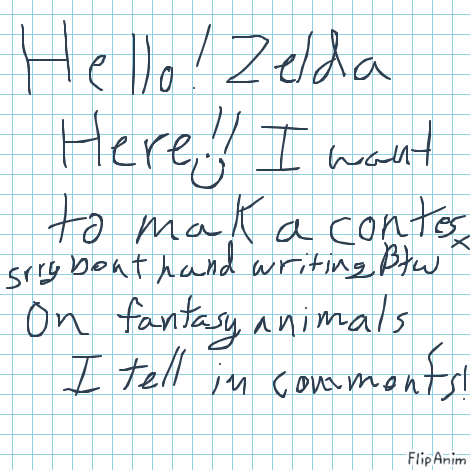 Hello! Zelda
Here!! :) I want
to mak a contes
srry bout hand writing Btw
On fantasy animals
I tell in comments!
FlipAnim